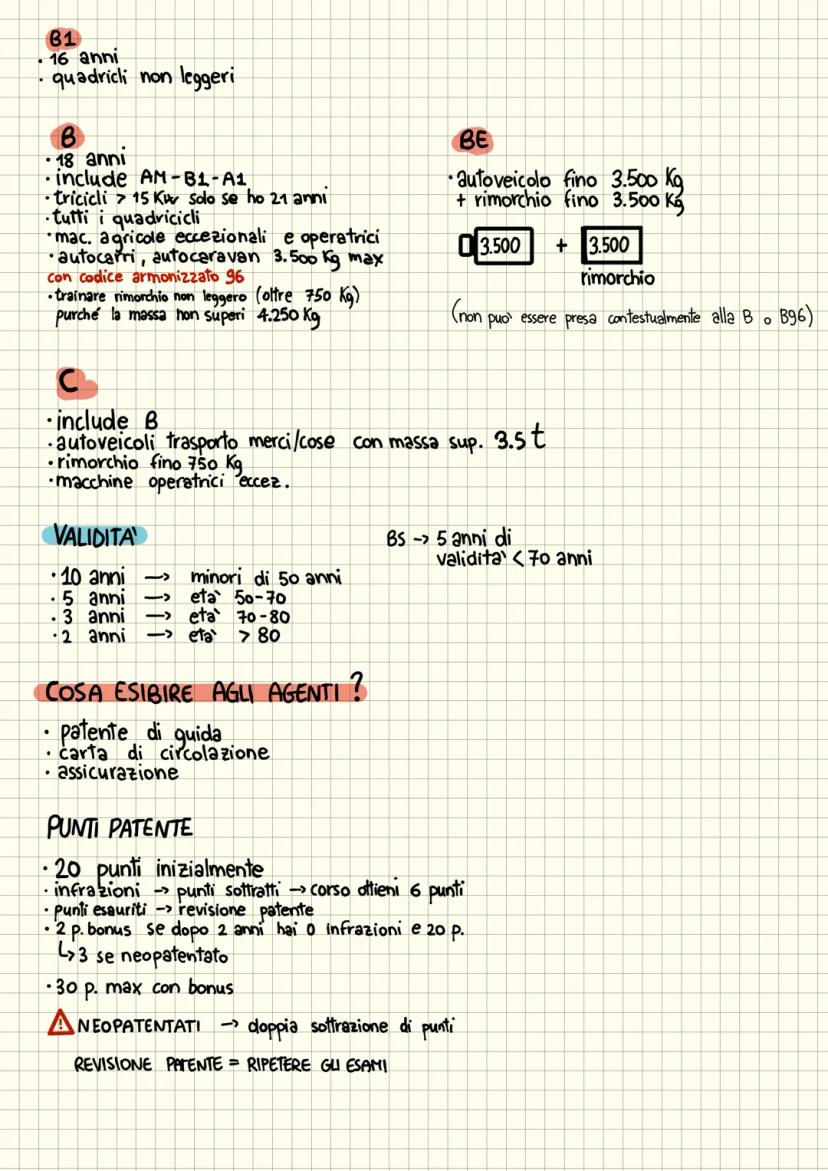 B1
· 16 anni
· quadricli non leggeri
B
· 18 anni
· include AM-B1-A1
· tricicli > 15 Kw solo se ho 21 anni
· tutti i quadricicli
· mac. agricole eccezionali e operatrici
· autocarri, autocaravan 3.500 Kg max
con codice armonizzato 96
· trainare rimorchio non leggero (oltre 750 Kg)
purché la massa non superi 4.250 Kg
BE
· autoveicolo fino 3.500 Kg
+ rimorchio fino 3.500 Kg
3.500 + 3.500
rimorchio
(non può essere presa contestualmente alla B o B96)
C
· include B
· autoveicoli trasporto merci/cose con massa sup. 3.5 t
· rimorchio fino 750 Kg
· macchine operatrici eccez.
VALIDITA'
· 10 anni → minori di 50 anni
· 5 anni → età 50-70
· 3 anni → età 70-80
· 2 anni → età > 80
BS → 5 anni di
validità < 70 anni
COSA ESIBIRE AGLI AGENTI?
· patente di guida
· carta di circolazione
· assicurazione
PUNTI PATENTE
· 20 punti inizialmente
· infrazioni → punti sottratti → corso ottieni 6 punti
· punti esauriti → revisione patente
· 2 p. bonus se dopo 2 anni hai 0 infrazioni e 20 p.
↳ 3 se neopatentato
· 30 p. max con bonus
⚠ NEOPATENTATI → doppia sottrazione di punti
REVISIONE PATENTE = RIPETERE GLI ESAMI